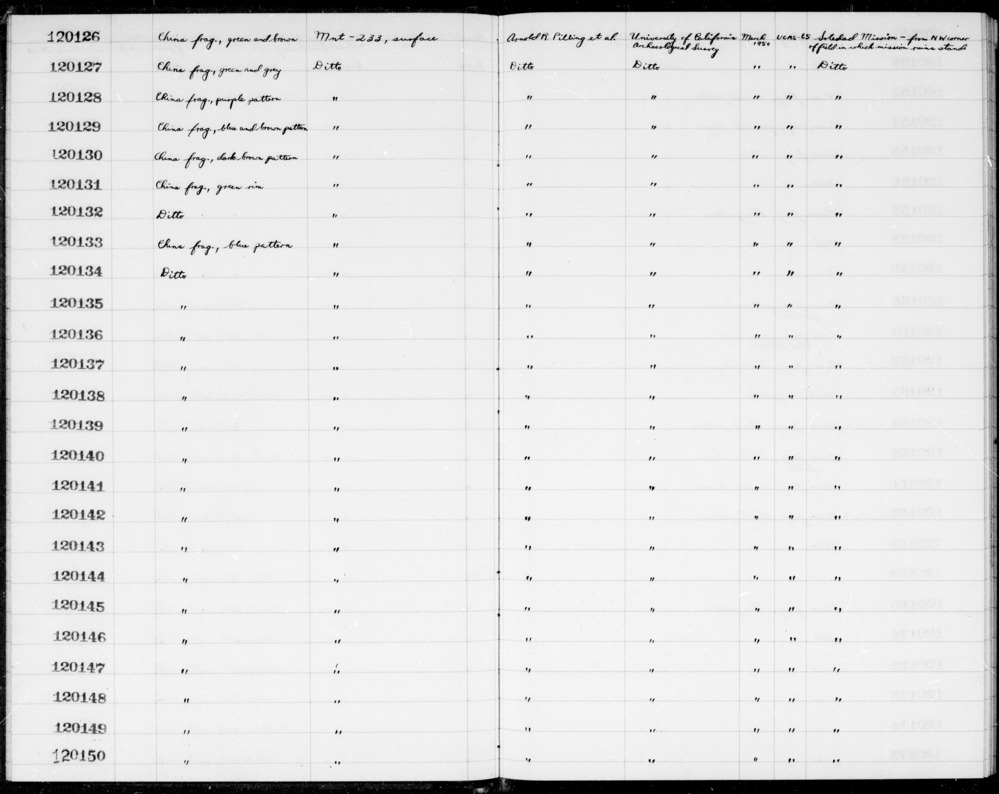 120126 China frag., green and brown Mnt-233, surface Arnold R. Pilling et al University of California Archaeological Survey March 1950 UCAS-65 Soledad Mission - from NW corner of field in which mission ruins stands
120127 China frag., green and grey Ditto Ditto Ditto " " Ditto
120128 China frag., purple pattern " " " " " "
120129 China frag., blue and brown pattern " " " " " "
120130 China frag., dark brown pattern " " " " " "
120131 China frag., green rim " " " " " "
120132 Ditto " " " " " "
120133 China frag., blue pattern " " " " " "
120134 Ditto " " " " " "
120135 " " " " " " "
120136 " " " " " " "
120137 " " " " " " "
120138 " " " " " " "
120139 " " " " " " "
120140 " " " " " " "
120141 " " " " " " "
120142 " " " " " " "
120143 " " " " " " "
120144 " " " " " " "
120145 " " " " " " "
120146 " " " " " " "
120147 " " " " " " "
120148 " " " " " " "
120149 " " " " " " "
120150 " " " " " " "